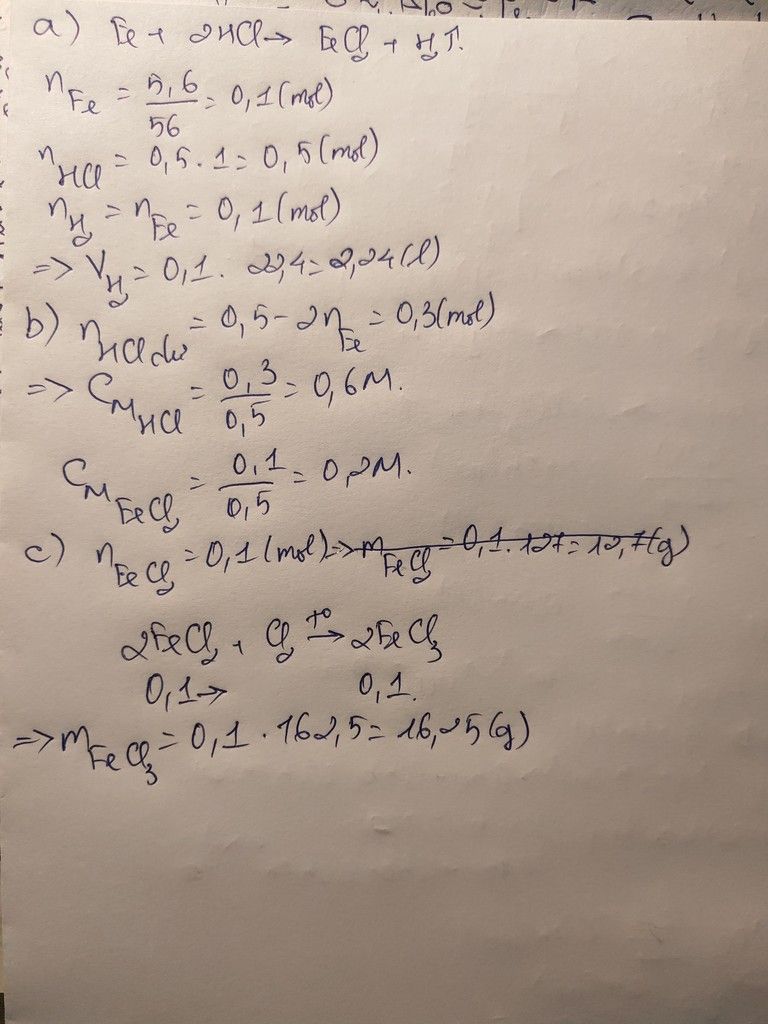 a) Fe + 2HCl → FeCl₂ + H₂↑.
n_Fe = 5,6/56 = 0,1 (mol)
n_HCl = 0,5 . 1 = 0,5 (mol)
n_H₂ = n_Fe = 0,1 (mol)
=> V_H₂ = 0,1 . 22,4 = 2,24 (l)
b) n_HCl dư = 0,5 - 2n_Fe = 0,3 (mol)
=> C_M HCl = 0,3/0,5 = 0,6M.
C_M FeCl₂ = 0,1/0,5 = 0,2M.
c) n_FeCl₂ = 0,1 (mol) => m_FeCl₂ = 0,1 . 127 = 12,7 (g)
2FeCl₂ + Cl₂ →(t°) 2FeCl₃
0,1 → 0,1.
=> m_FeCl₃ = 0,1 . 162,5 = 16,25 (g)